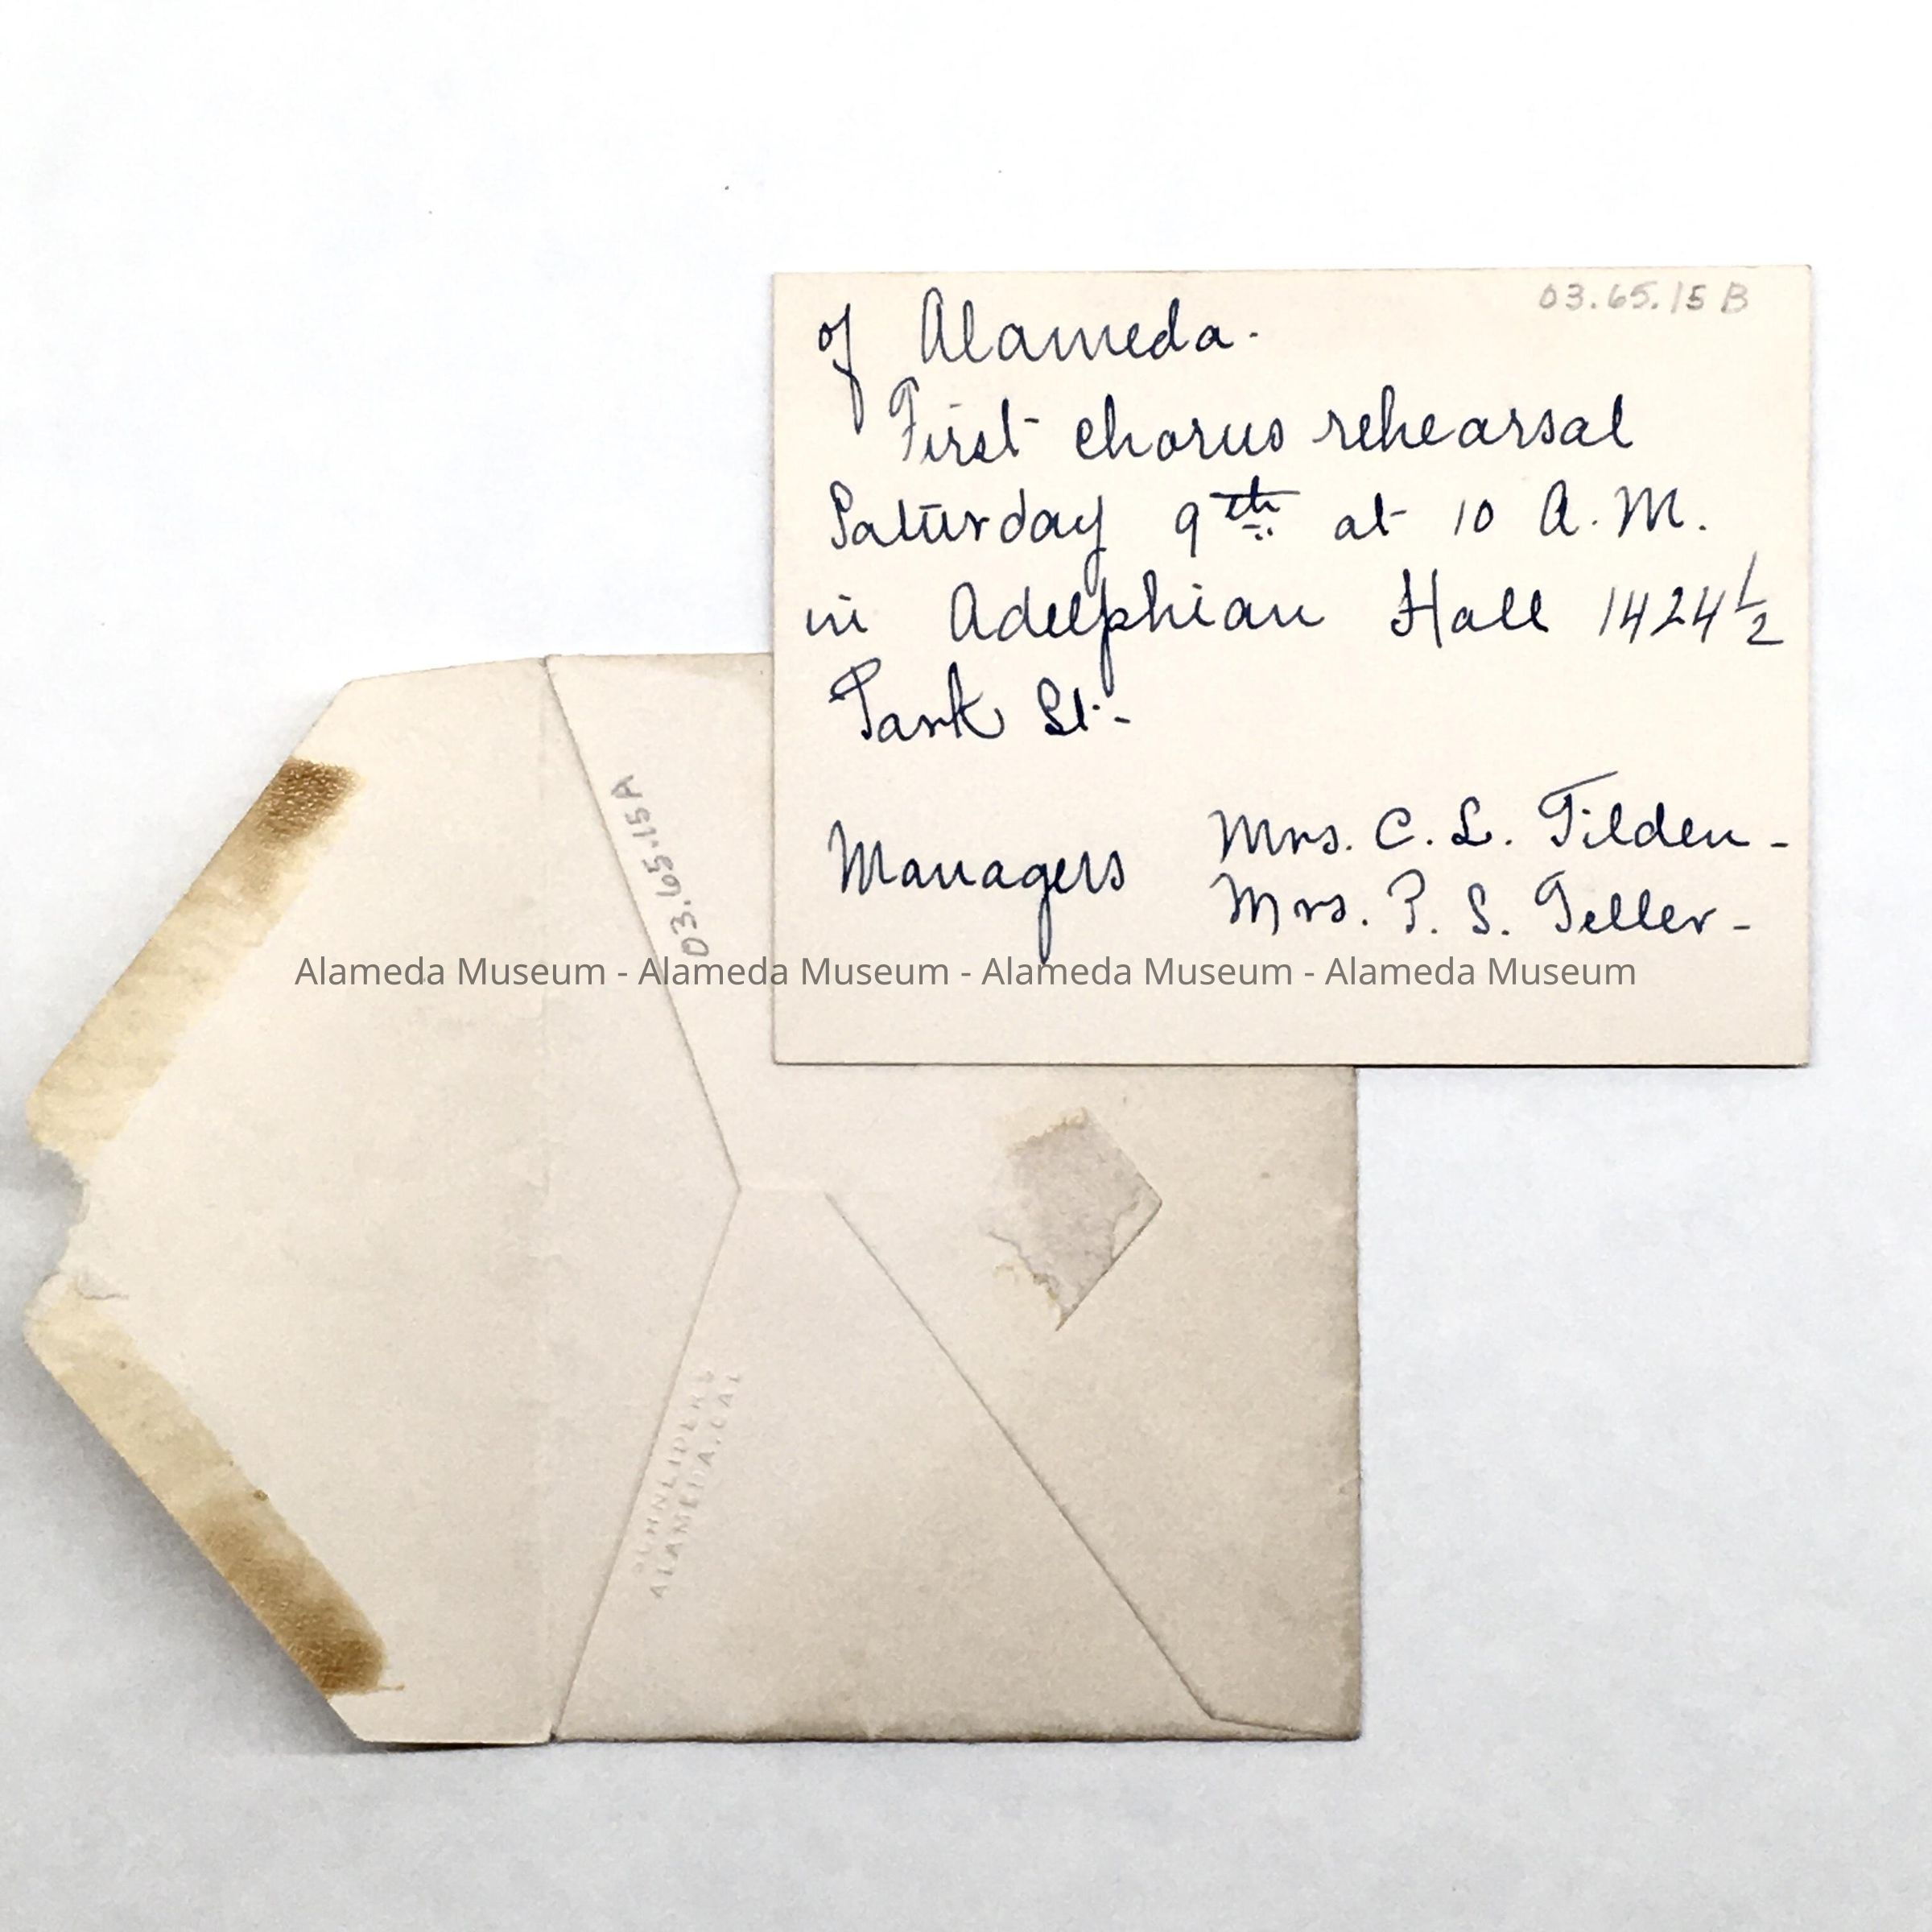 03.65.15 B
of Alameda.
First chorus rehearsal
Saturday 9th at 10 A.M.
in Adelphian Hall 1424 1/2
Park St.-
Managers Mrs. C. L. Tilden -
Mrs. P. S. Teller -
03.65.15A
Alameda Museum - Alameda Museum - Alameda Museum - Alameda Museum
ALAMEDA, CAL